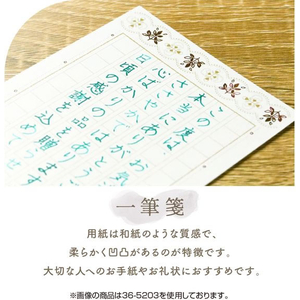 この度は
本当にありがとう
ささやかではあ
心ばかりのお
日頃の感謝を込めて
の品を贈ります
一筆箋
用紙は和紙のような質感で、
柔らかく凹凸があるのが特徴です。
大切な人へのお手紙やお礼状におすすめです。
※画像の商品は36-5203を使用しております。